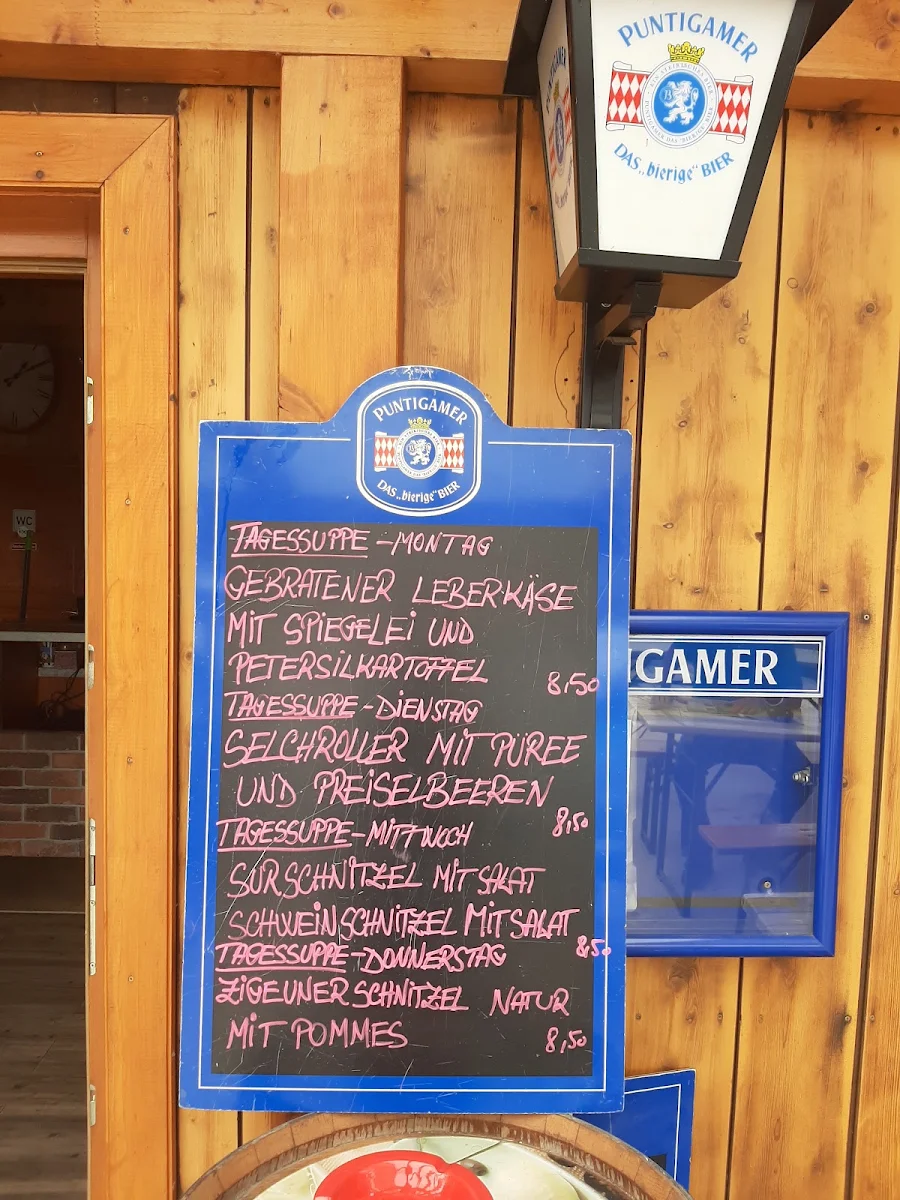 PUNTIGAMER
DAS „bierige“ BIER
PUNTIGAMER
DAS „bierige“ BIER
WC
TAGESSUPPE - MONTAG
GEBRATENER LEBERKÄSE
MIT SPIEGELEI UND
PETERSILKARTOFFEL 8,50
TAGESSUPPE - DIENSTAG
SELCHROLLER MIT PÜREE
UND PREISELBEEREN
8,50
TAGESSUPPE - MITTWOCH
SURSCHNITZEL MIT SALAT
SCHWEINSCHNITZEL MIT SALAT
8,50
TAGESSUPPE - DONNERSTAG
ZIGEUNERSCHNITZEL NATUR
MIT POMMES 8,50
IGAMER